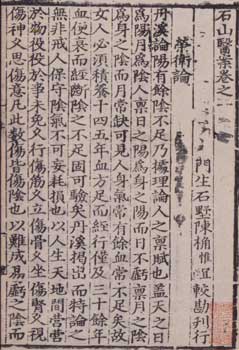 石山醫案卷之一
門生石墅陳桷惟宜較勘刋行
營衛論
丹溪論陽有餘陰不足乃據理論人之稟賦也蓋天之日
爲陽月爲陰人稟日之陽爲身之陽而日不虧稟月之陰
爲身之陰而月常缺可見人身氣常有餘血常不足矣故
女人必須積養十四五年血方足而經行僅及三十餘年
血便衰而經斷陰之不足固可驗矣丹溪揭出而特論之
無非戒人保守陰氣不可妄耗損也以人生天地間營營
於物役於事未免久行傷筋久立傷骨久坐傷腎久視
傷神久思傷意凡此數傷皆傷陰也以難成易虧之陰而